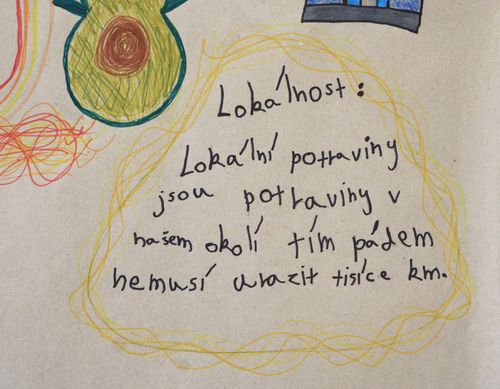 Lokálnost:
Lokální potraviny
jsou potraviny v
našem okolí tím pádem
nemusí urazit tisíce km.